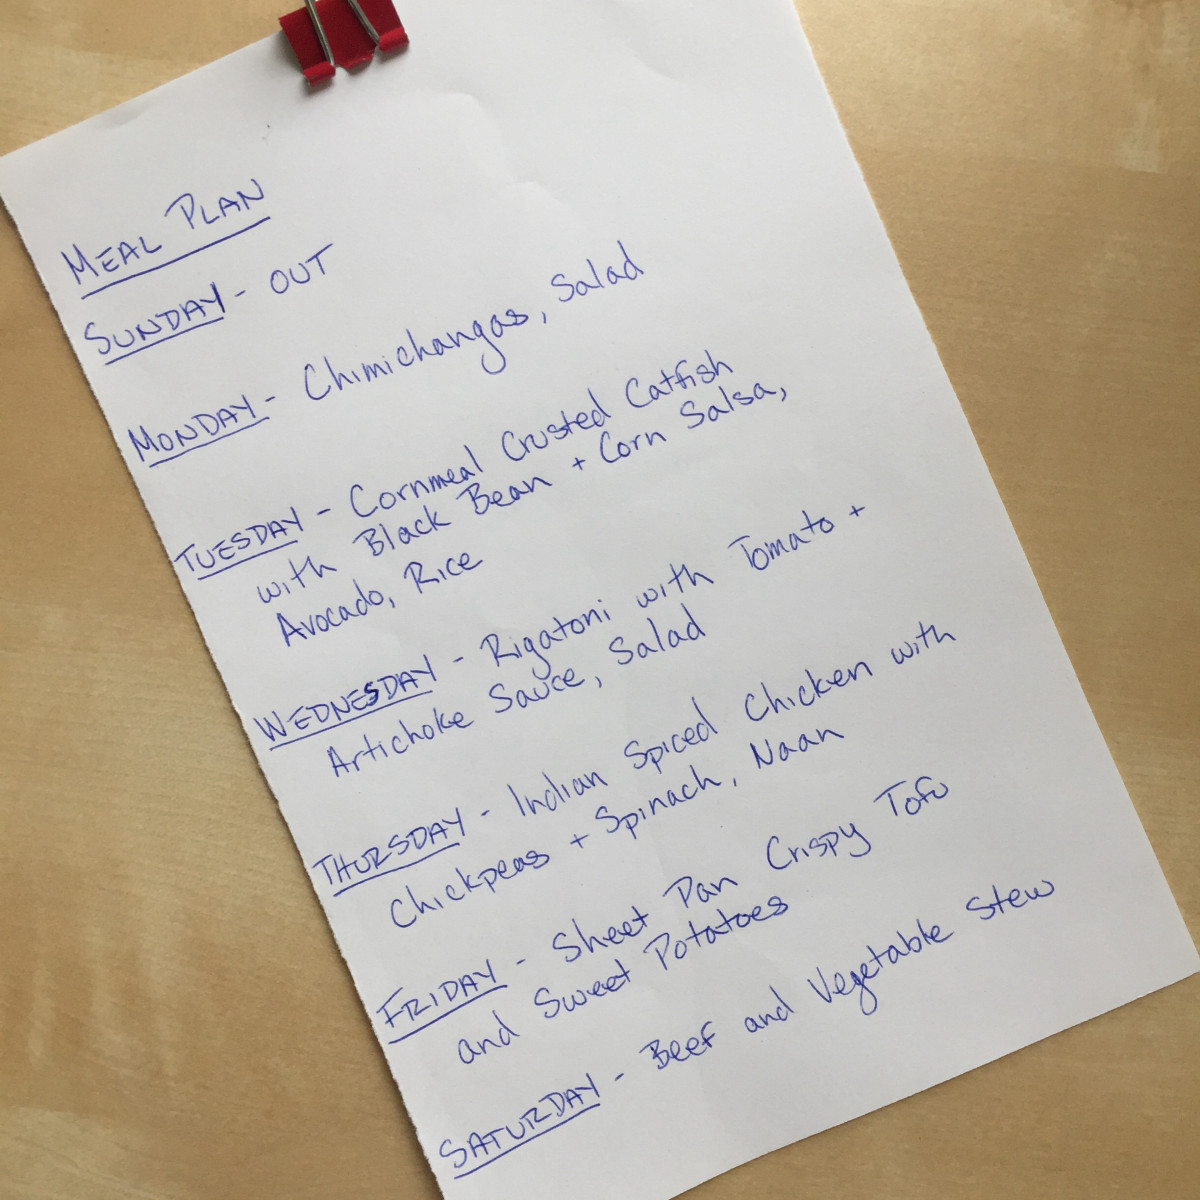 MEAL PLAN
SUNDAY - OUT
MONDAY - Chimichangas, Salad
TUESDAY - Cornmeal Crusted Catfish
with Black Bean + Corn Salsa,
Avocado, Rice
WEDNESDAY - Rigatoni with Tomato +
Artichoke Sauce, Salad
THURSDAY - Indian Spiced Chicken with
Chickpeas + Spinach, Naan
FRIDAY - Sheet Pan Crispy Tofu
and Sweet Potatoes
SATURDAY - Beef and Vegetable Stew